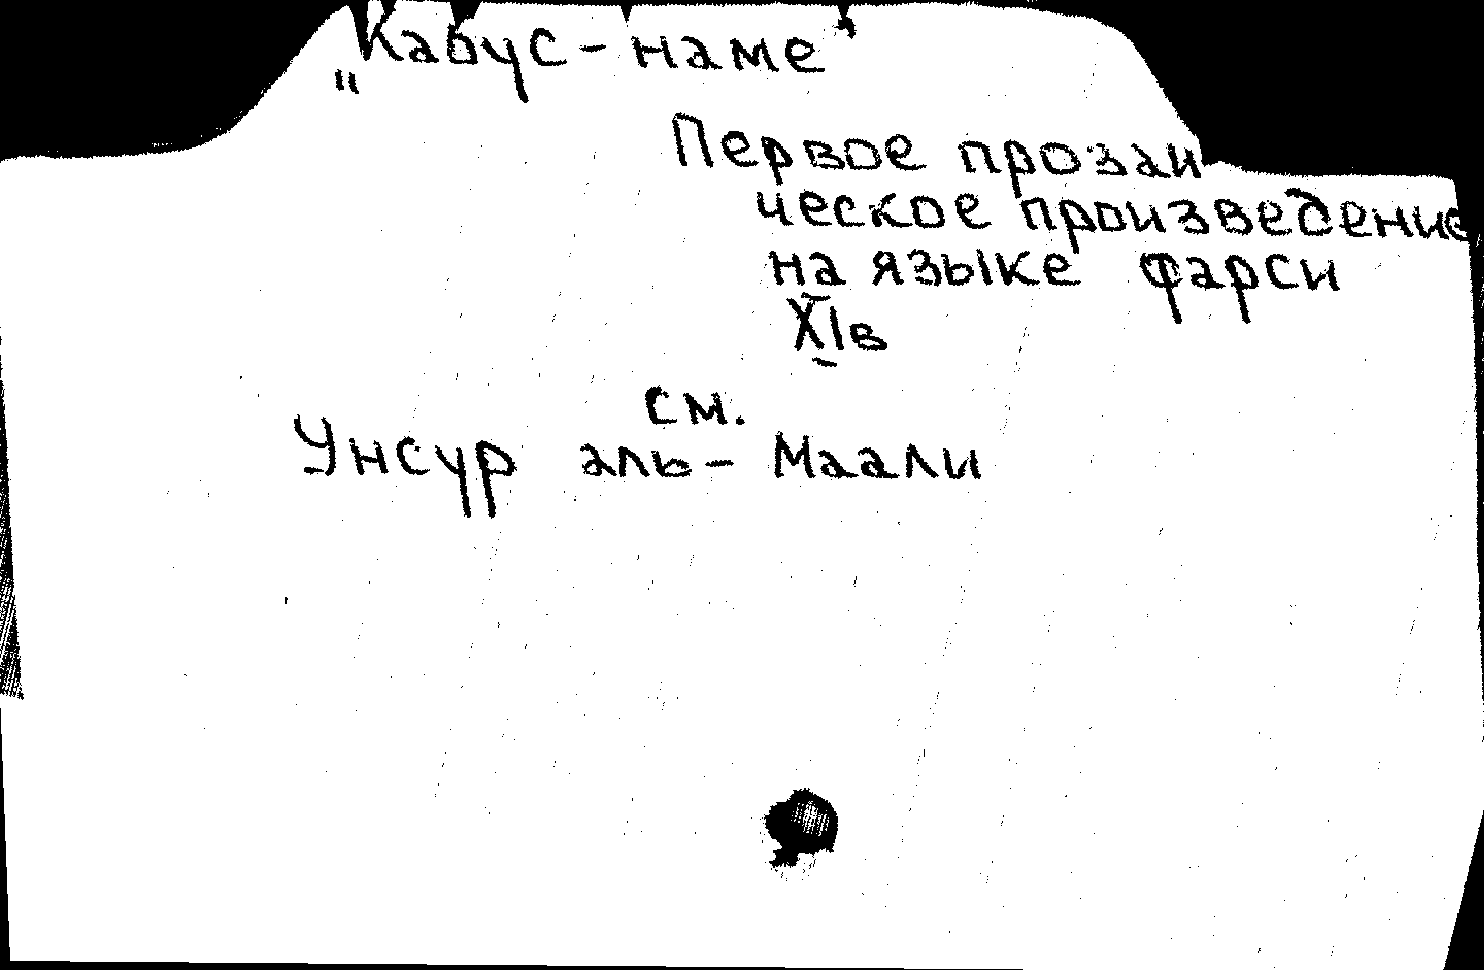 „Кабус-наме"
Первое прозаи
ческое произведение
на языке фарси
XIв
см.
Унсур аль-Маали